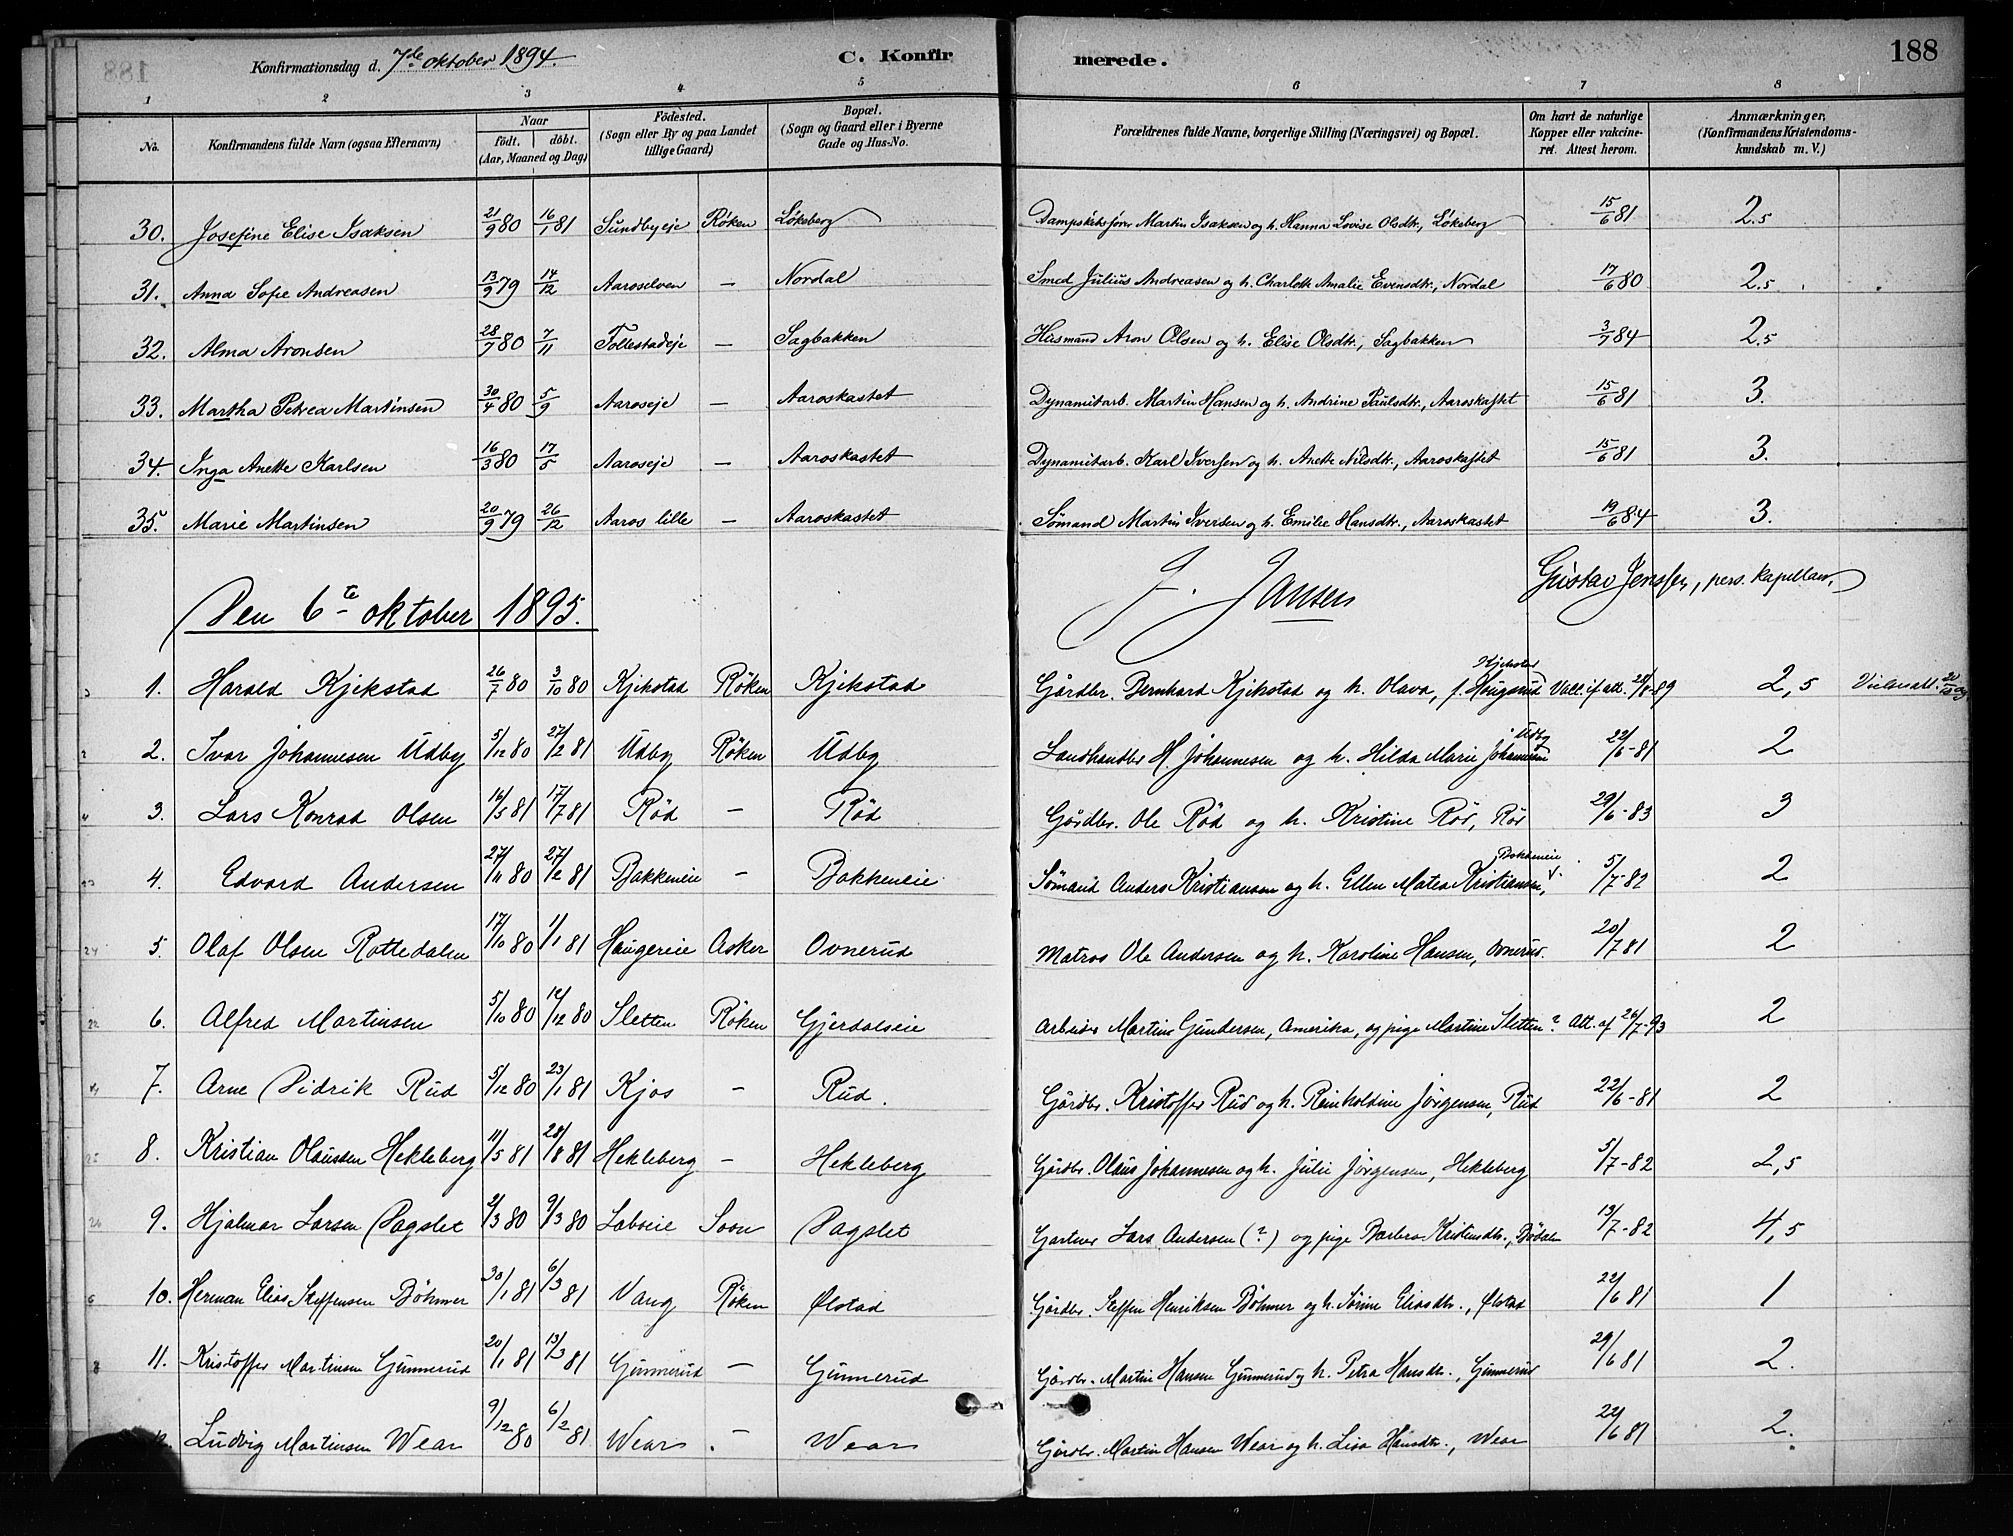 Konfirmationsdag d. 7de oktober 1894. C. Konfirmerede. 188
1 2 3 4 5 6 7 8
No. Konfirmandens fulde Navn (ogsaa Efternavn) Naar født. døbt. (Aar, Maaned og Dag) Fødested. (Sogn eller By og paa Landet tillige Gaard) Bopæl. (Sogn og Gaard eller i Byerne Gade og Hus-No. Forældrenes fulde Navne, borgerlige Stilling (Næringsvei) og Bopæl. Om havt de naturlige Kopper eller vakcineret. Attest herom. Anmærkninger. (Konfirmandens Kristendomskundskab m. V.)
30. Josefine Elise Isaksen 21/9 80 16/1 81 Sundbyeje Røken Løkeberg Dampskibsfører Martin Isaksen og h. Hanna Lovise Olsdtr., Løkeberg 15/6 81 2.5
31. Anna Sofie Andreasen 13/9 79 14/12 Aaroselven – Nordal Smed Julius Andreasen og h. Charlotte Amalie Evensdtr., Nordal 17/6 80 2.5
32. Alma Aronsen 28/9 80 7/11 Follestadeje – Sagbakken Husmand Aron Olsen og h. Elise Olsdtr., Sagbakken 3/7 84 2.5
33. Martha Petrea Martinsen 30/4 80 5/9 Aaroseje – Aaroskastet Dynamitarb. Martin Hansen og h. Andrine Paulsdtr., Aaroskastet 15/6 81 3.
34. Inga Anette Karlsen 16/3 80 17/5 Aaroseje – Aaroskastet Dynamitarb. Karl Iversen og h. Anette Nilsdtr., Aaroskastet 15/6 81 3.
35. Marie Martinsen 20/9 79 26/12 Aaros lille – Aaroskastet Sømand Martin Iversen og h. Emilie Hansdtr., Aaroskastet 19/6 84 3.
J. Jansen Gustav Jensen, pers. kapellan.
Den 6te oktober 1895.
1. Harald Kjekstad 26/7 80 3/10 80 Kjekstad Røken Kjekstad Gårdbr. Bernhard Kjekstad og h. Olava, f. Haugerud Kjekstad Vacc. if. att. 28/8-89 2,5
2. Ivar Johannesen Udby 5/12 80 27/2 81 Udby Røken Udby Landhandler H. Johannesen og h. Hilda Marie Johannesen, Udby 22/6-81 2
3. Lars Konrad Olsen 16/5 81 17/7 81 Rød – Rød Gårdbr. Ole Rød og h. Kristine Rød, Rød 29/6-83 3
4. Edvard Andersen 27/11 80 27/2 81 Bakkeneie – Bakkeneie Sømand Anders Kristiansen og h. Ellen Matea Kristiansen, Bakkeneie 5/7-82 2
5. Olaf Olsen Rottedalen 17/10 80 1/1 81 Haugereie Asker Ovnerud Matros Ole Andersen og h. Karoline Hansen, Ovnerud. 20/7 81 2
6. Alfred Martinsen 5/10 80 12/12 80 Sletten Røken Gjerdalseie Arbeider Martin Gundersen, Amerika, og pige Martine Sletten? Att. af 26/7-93 2
7. Arne Didrik Rud 5/12 80 23/1 81 Kjos – Rud. Gårdbr. Kristoffer Rud og h. Reinholdine Jørgensen, Rud 22/6-81 2
8. Kristian Olaussen Hekleberg 11/5 81 28/8 81 Hekleberg – Hekleberg Gårdbr. Olaus Johannesen og h. Julie Jørgensen, Hekleberg 5/7-82 2,5
9. Hjalmar Larsen Dagslet 2/3 80 9/3 80 Dagslet Gartner Lars Andersen (?) og pige Barbra Kristensdtr., Bødalen 13/7-82 4,5
10. Herman Elias Steffensen Bøhmer 30/1 81 6/3 81 Vang Røken Ølstad Gårdbr. Steffen Henriksen Bøhmer og h. Sørine Eliasdtr., Ølstad 22/6 81 1
11. Kristoffer Martinsen Gunnerud 20/1 81 13/3 81 Gunnerud – Gunnerud Gårdbr. Martin Hansen Gunnerud og h. Petra Hansdtr., Gunnerud 29/6 81 2.
12. Ludvig Martinsen Wear 9/12 80 6/2 81 Wear – Wear Gårdbr. Martin Hansen Wear og h. Lisa Hansdtr., Wear 22/6 81 2.